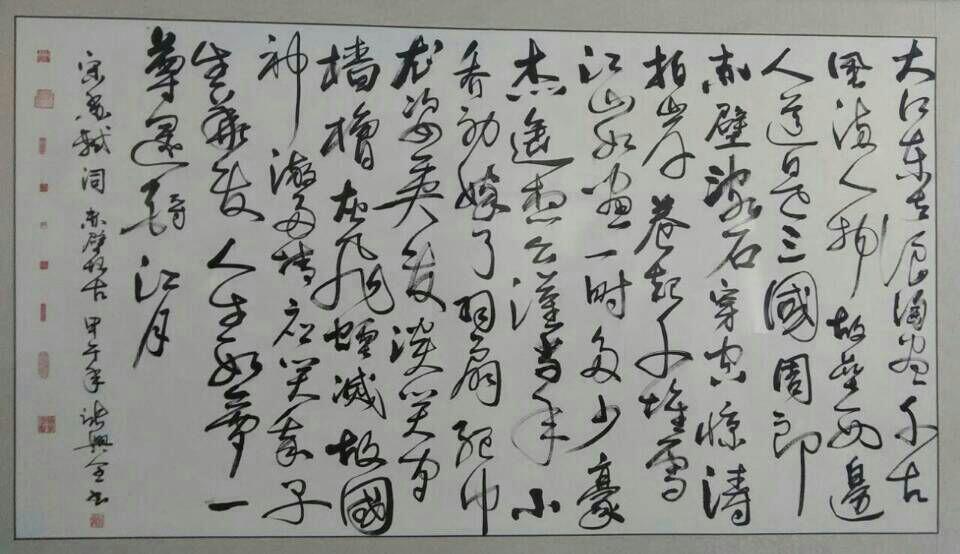 大江东去浪淘尽千古
風流人物故壘西邊
人道是三國周郎
赤壁乱石穿空惊涛
拍岸卷起千堆雪
江山如画一时多少豪
杰遥想公瑾当年小
乔初嫁了羽扇纶巾
雄姿英发谈笑间
檣櫓灰飞烟滅故國
神游多情应笑我早
生華发人生如梦一
尊還酹江月
宋蘇軾词 赤壁怀古 甲午年 興全书